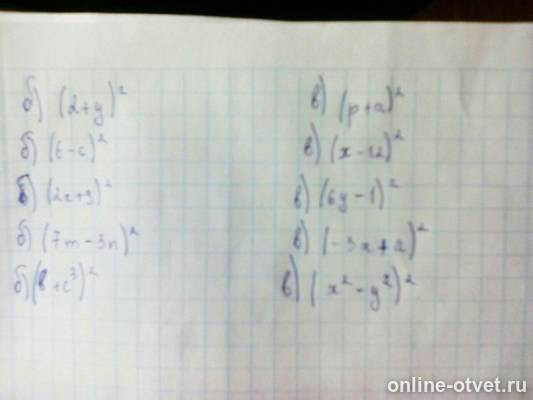 б) (2+y)² в) (p+a)²
б) (6-c)² в) (x-12)²
б) (2x+9)² в) (6y-1)²
б) (7m-3n)² в) (-3x+a)²
б) (в+c³)² в) (x²-y²)²
online-otvet.ru